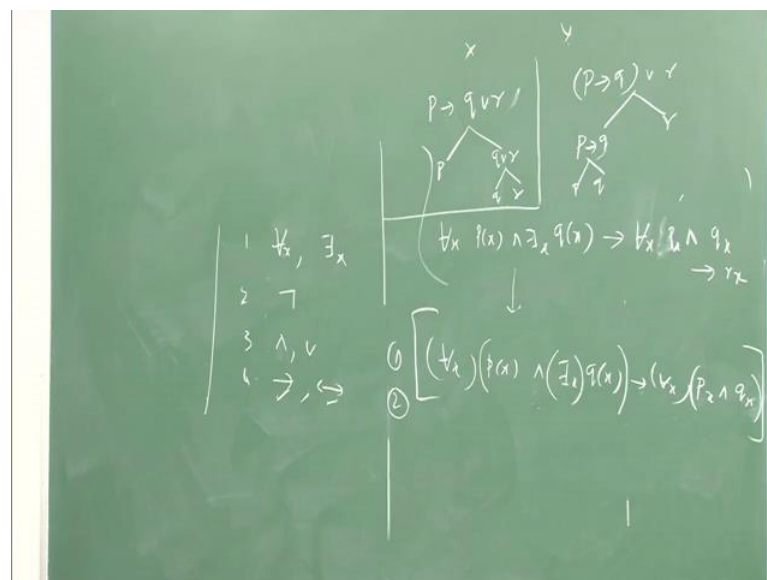 x
y
p → q ∨ r
(p → q) ∨ r
p
q ∨ r
q r
p → q
r
p q
1 ∀x, ∃x
2 ¬
3 ∧, ∨
4 →, ↔
∀x p(x) ∧ ∃x q(x) → ∀x px ∧ qx
→ rx
↓
① [(∀x)(p(x) ∧ (∃x) q(x)) → (∀x)(px ∧ qx)]
②